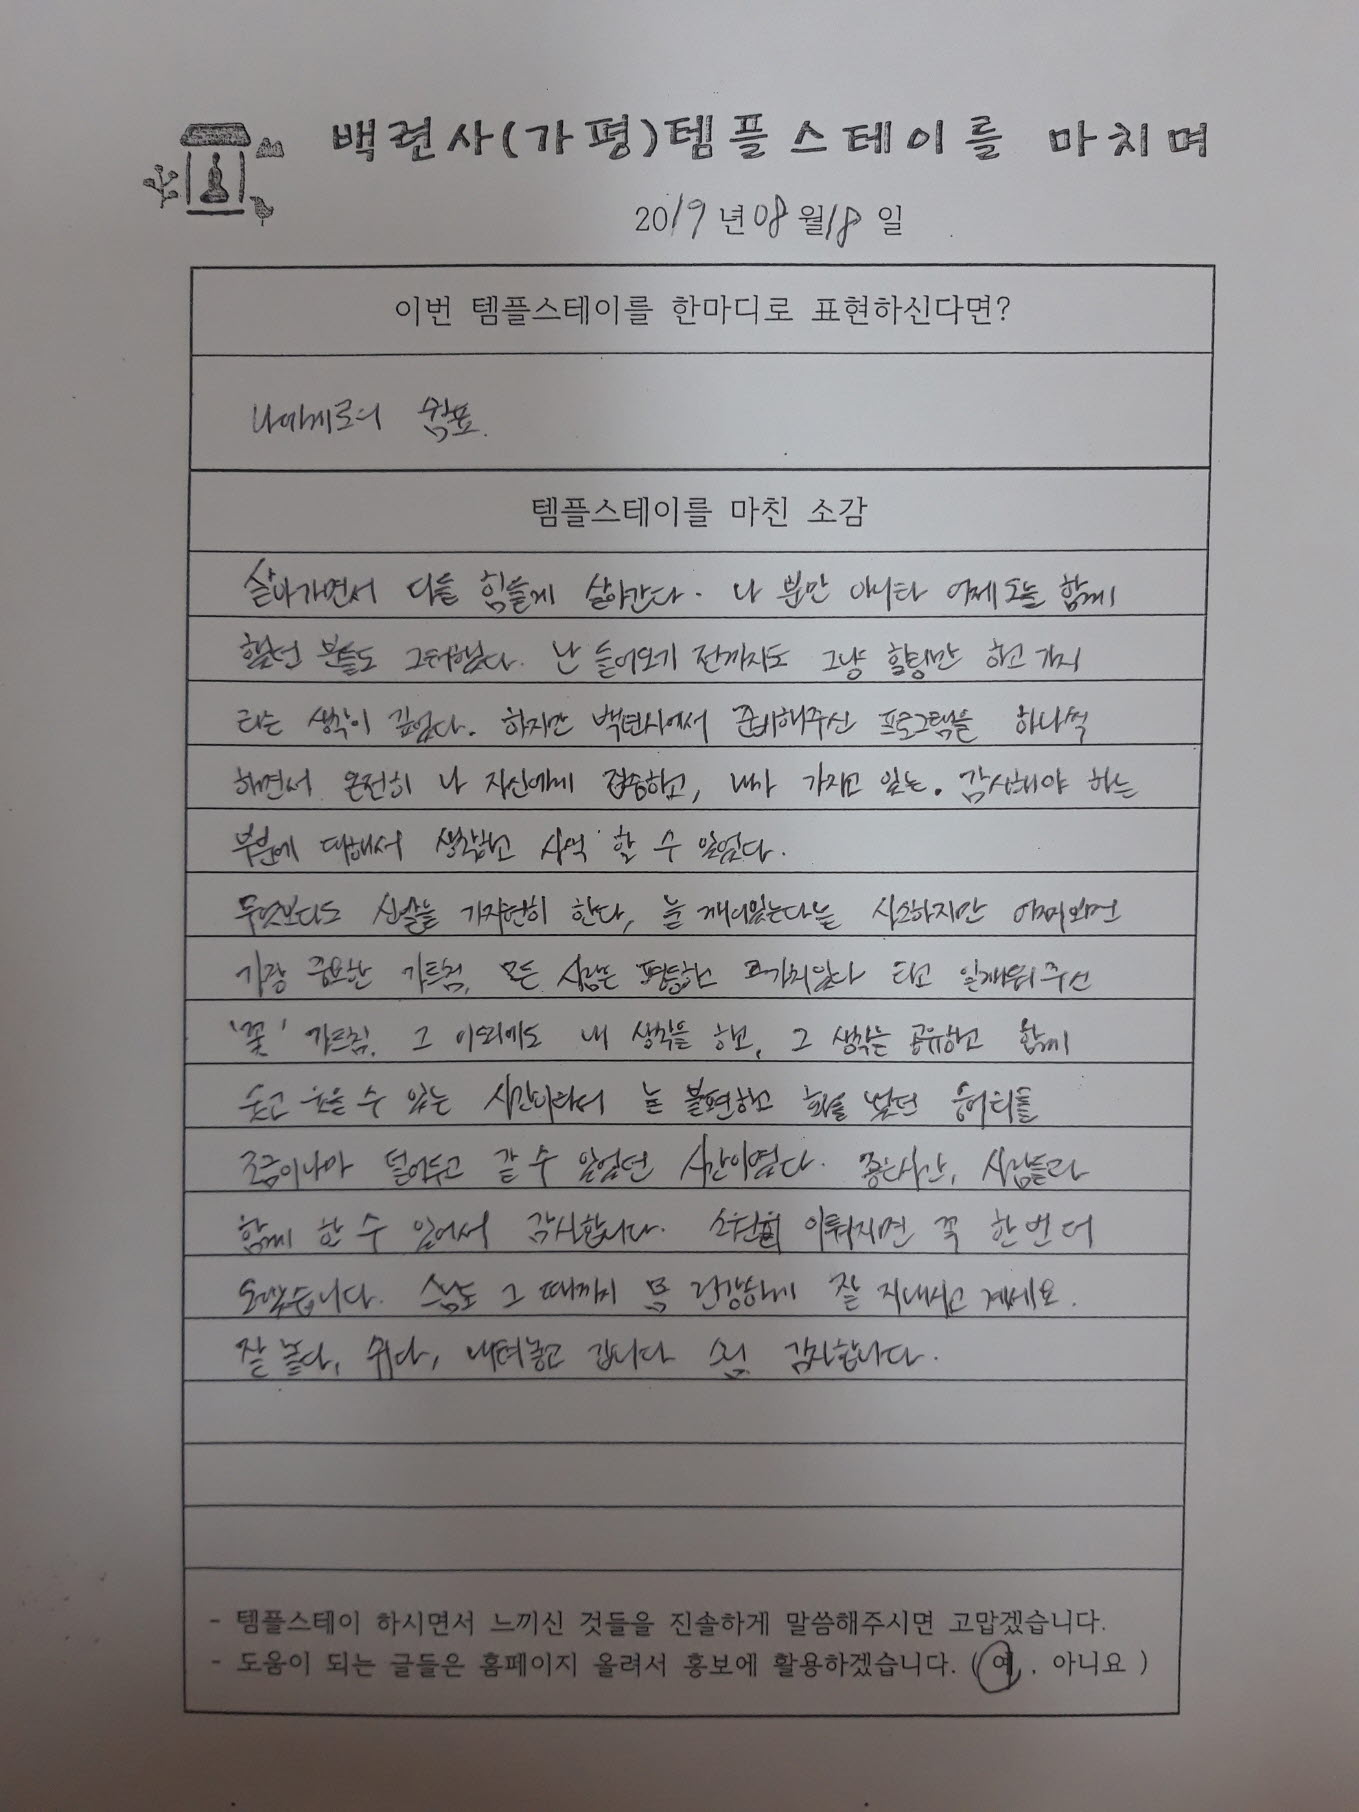 백련사(가평)템플스테이를 마치며
2019년 08월 18일
이번 템플스테이를 한마디로 표현하신다면?
나에게로의 쉼표.
템플스테이를 마친 소감
살아가면서 다들 힘들게 살아간다. 나 뿐만 아니라 어제 오늘 함께
했던 분들도 그러했다. 난 들어오기 전까지도 그냥 힐링만 하고 가자
라는 생각이 깊었다. 하지만 백련사에서 준비해주신 프로그램을 하나씩
하면서 온전히 나 자신에게 집중하고, 내가 가지고 있는. 감사해야 하는
부분에 대해서 생각하고 사색 할 수 있었다.
무엇보다도 신발을 가지런히 한다, 늘 깨어있는다는 사소하지만 어쩌면
가장 중요한 가르침, 모든 사람은 평등하고 가치있다 라고 일깨워주신
'꽃' 가르침. 그 이외에도 내 생각을 하고, 그 생각을 공유하고 함께
웃고 웃을 수 있는 시간이라서 늘 불편하고 했던 응어리들
조금이나마 덜어두고 갈 수 있었던 시간이였다. 좋은시간, 사람들과
함께 할 수 있어서 감사합니다. 소원 이뤄지면 꼭 한번 더
오겠습니다. 스님도 그 때까지 몸 건강하게 잘 지내시고 계세요.
잘 놀다, 쉬다, 내려놓고 갑니다 스님 감사합니다.
- 템플스테이 하시면서 느끼신 것들을 진솔하게 말씀해주시면 고맙겠습니다.
- 도움이 되는 글들은 홈페이지 올려서 홍보에 활용하겠습니다. ( 예 , 아니요 )